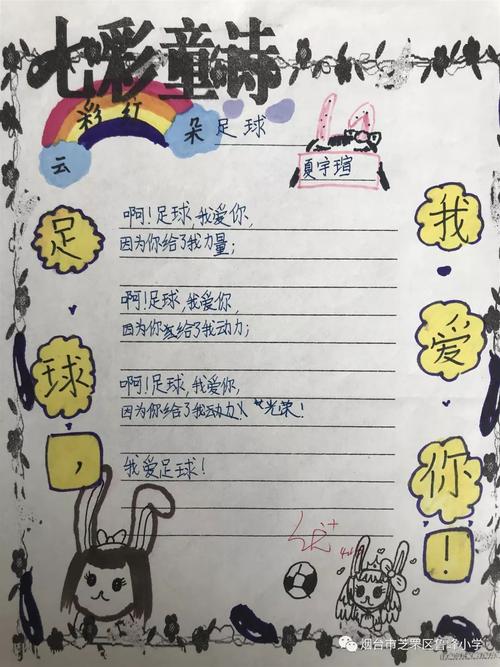 七彩童诗
彩红
云 朵
足球
夏宇瑄
啊！足球，我爱你，
因为你给了我力量；
啊！足球，我爱你，
因为你给了我动力；
啊！足球，我爱你，
因为你给了我光荣！
我爱足球！
足球，
我爱你！
优+
烟台市芝罘区鲁峰小学